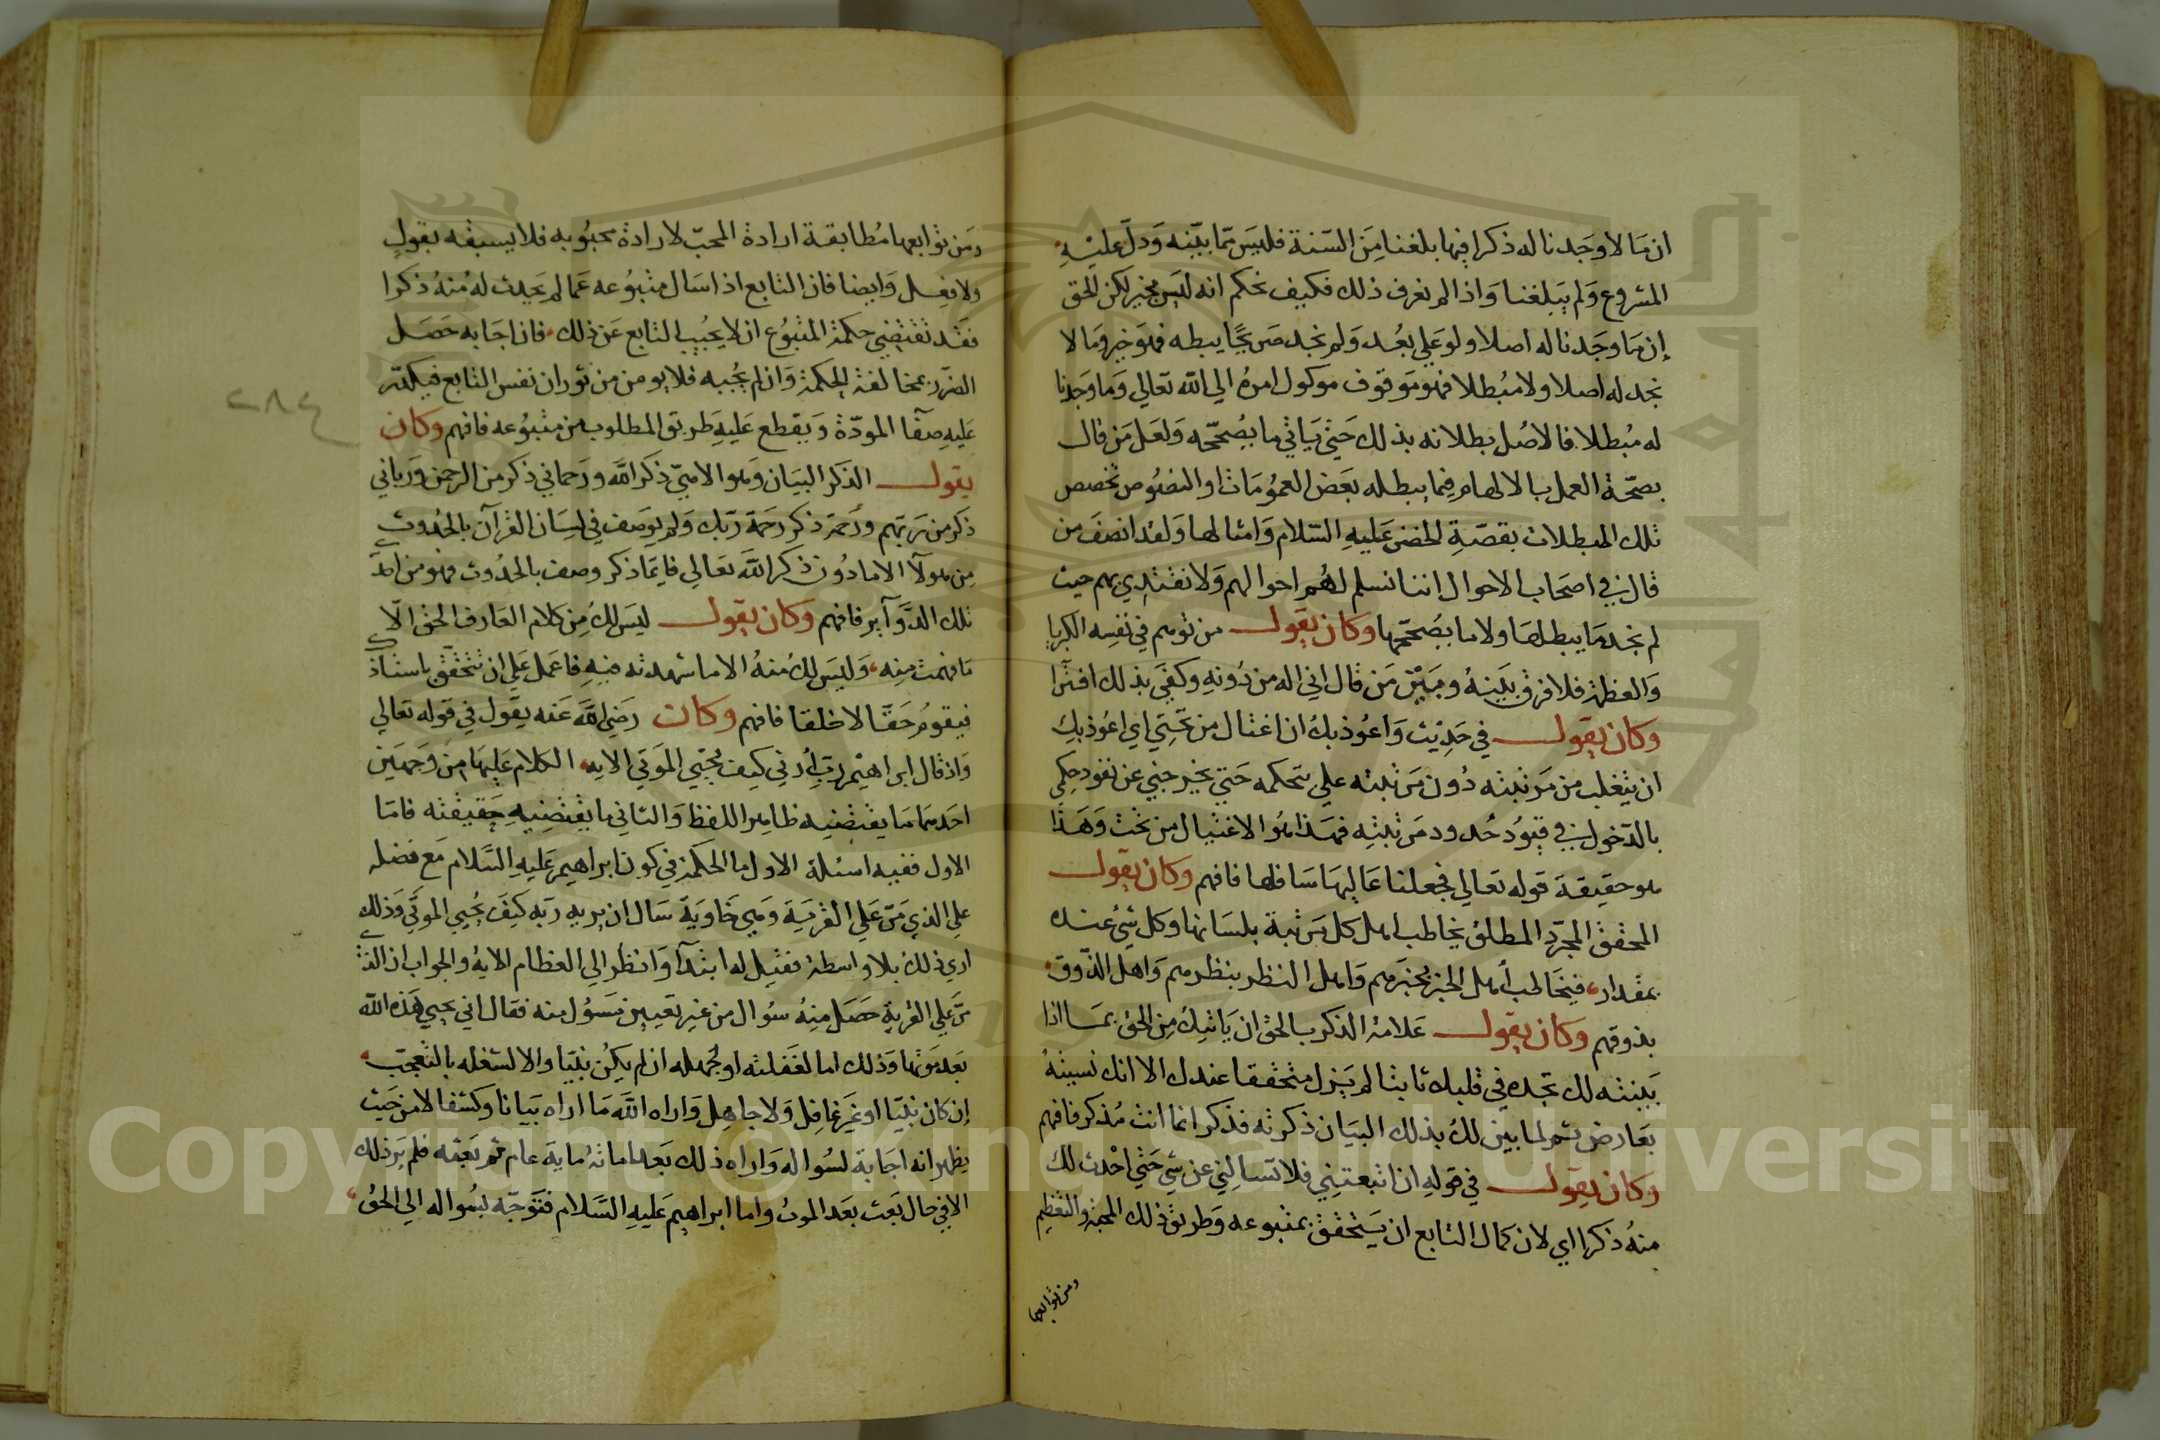 ان ما لا وجدنا له ذكرا فيما بلغنا من السنة فليس مما بينه ودل عليه
المشروع ولم يبلغنا واذا لم نعرف ذلك فكيف نحكم انه ليس بخير لكن الحق
إن ما وجدنا له اصلا ولو علي بعد ولم نجد يبطله فهو خير وما لا
نجد له اصلا ولا مبطلا فهو موقوف موكول امره الي الله تعالي وما وجدنا
له مبطلا فالاصل بطلانه بذلك حتي ياتي ما يصححه ولعل من قال
بصحة العمل بالالهام فيما يبطله بعض العمومات او النصوص تخصص
تلك المبطلات بقصة الخضر عليه السلام وامثالها ولقد انصف من
قال في اصحاب الاحوال اننا نسلم لهم احوالهم ولا نقتدي بهم حيث
لم نجد ما يبطلها ولا ما يصححها وكان يقول من توهم في نفسه الكبريا
والعظمة فلا فرق بينه وبين من قال اني اله من دونه وكفي بذلك افترا
وكان يقول في حديث واعوذ بك ان اغتال من تحتي اي اعوذ بك
ان يتغلب من مرتبته دون مرتبته علي تحكمه حتي يخرجني عن نفود حكمي
بالدخول في قيود حدود مرتبته فهذا هو الاغتيال من تحت وهذا
هو حقيقة قوله تعالي فجعلنا عاليها سافلها فافهم وكان يقول
المحقق المجرد المطلق يخاطب اهل كل مرتبة بلسانها وكل شئ عنده
بمقدار فيخاطب أهل الخبر بخبرهم واهل النظر بنظرهم واهل الذوق
بذوقهم وكان يقول علامة الذكر بالحق ان ياتيك من الحق بما اذا
بينته لك تجده في قلبك ثابتا لم يزل متحققا عندك الا انك نسيته
بعارض ثم لما بين لك بذلك البيان ذكرته فذكر انما انت مذكر فافهم
وكان يقول في قوله ان اتبعتني فلا تسالني عن شي حتي احدث لك
منه ذكرا اي لان كمال التابع ان يتحقق بمتبوعه وطريق ذلك المحبة والتعظيم
ومن توابعها
ومن توابعها مطابقة ارادة المحب لارادة محبوبه فلا يسبقه بقول
ولا بفعل وايضا فان التابع اذا سال متبوعه عما لم يحدث له منه ذكرا
فقد تقتضي حكمة المتبوع ان لا يجيب التابع عن ذلك فان اجابه حصل
الضرر بمخالفة الحكمة وان لم يجبه فلا يومن من ثوران نفس التابع فيكدر
عليه صفا المودة ويقطع عليه طريق المطلوب من متبوعه فافهم وكان
٢٨٤
يقول الذكر البيان وهو الامي ذكر الله ورحماني ذكر من الرحمن ورباني
ذكر من ربهم ورحمة ذكر رحمة ربك ولم يوصف في لسان القرآن بالحدوث
من هولآ الا ما دون ذكر الله تعالي فايما ذكر وصف بالحدوث فهو من
تلك الدوآير فافهم وكان يقول ليس لك من كلام العارف الحق الا
ما فهمت منه وليس لك منه الا ما شهدته فيه فاعمل علي ان تتحقق باستاذ
فيقوم حقا لا خلقا فافهم وكان رضي الله عنه يقول في قوله تعالي
واذ قال ابراهيم رب أرني كيف تحيي الموتي الايه الكلام عليها من وجهين
احدهما ما يقتضيه ظاهر اللفظ والثاني ما يقتضيه حقيقته فاما
الاول ففيه اسئلة الاول ما الحكمة في كون ابراهيم عليه السلام مع فضله
علي الذي مر علي القرية وهي خاوية سال ان يريه ربه كيف يحيي الموتي وذلك
اري ذلك بلا واسطة فقيل له ابتدآ وانظر الي العظام الاية والجواب ان الذي
مر علي القرية حصل منه سوال من غير تعيين مسول منه فقال اني يحيي هذه الله
بعد موتها وذلك اما لغفلته او جهله ان لم يكن نبيا والا لشغله بالتعجب
إن كان نبيا او غير غافل ولا جاهل واراه الله ما اراه بيانا وكشفا لا من حيث
يظهر انه اجابة لسواله واراه ذلك بعد اماته ماية عام ثم بعثه فلم ير ذلك
الا في حال بعث بعد الموت واما ابراهيم عليه السلام فتوجه بسواله الي الحق
Copyright © King Saud University